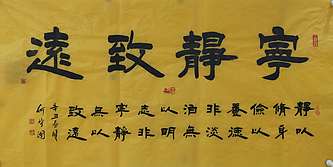 寧靜致遠
靜以
脩身
儉以
養德
非淡
泊無
以明
志非
寧靜
無以
致遠
辛丑春月